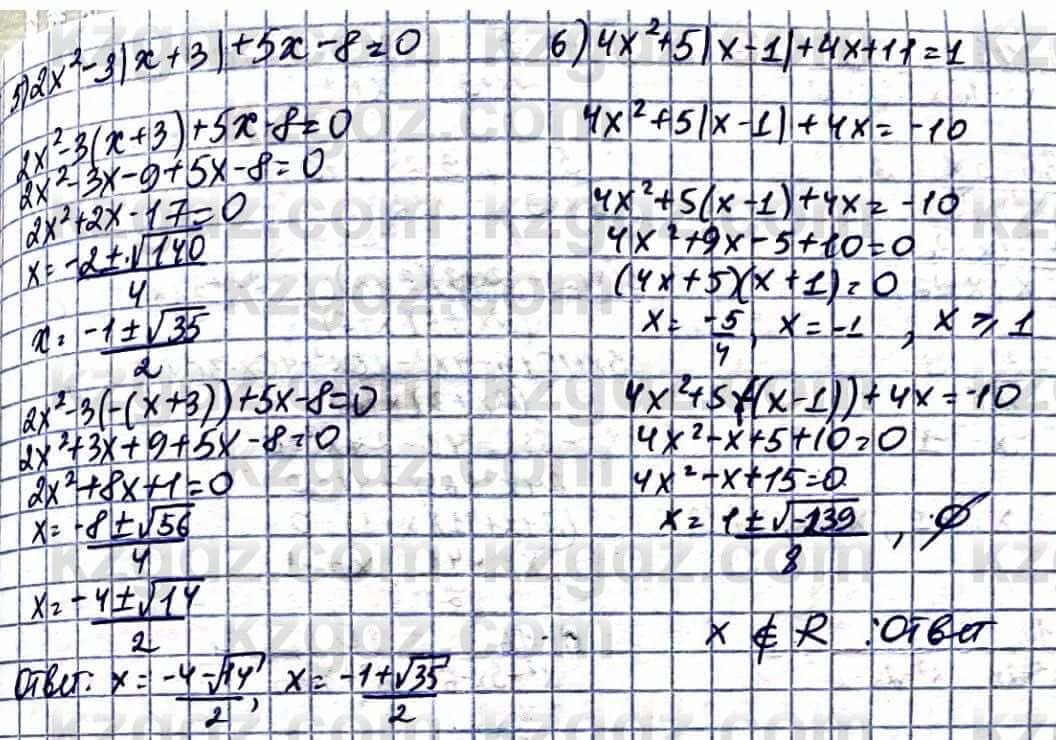 5) 2x² - 3|x + 3| + 5x - 8 = 0
2x² - 3(x + 3) + 5x - 8 = 0
2x² - 3x - 9 + 5x - 8 = 0
2x² + 2x - 17 = 0
x = (-2 ± √140)/4
x = (-1 ± √35)/2
2x² - 3(-(x + 3)) + 5x - 8 = 0
2x² + 3x + 9 + 5x - 8 = 0
2x² + 8x + 1 = 0
x = (-8 ± √56)/4
x = (-4 ± √14)/2
Ответ: x = (-4 - √14)/2, x = (-1 + √35)/2
6) 4x² + 5|x - 1| + 4x + 11 = 1
4x² + 5|x - 1| + 4x = -10
4x² + 5(x - 1) + 4x = -10
4x² + 9x - 5 + 10 = 0
(4x + 5)(x + 1) = 0
x = -5/4, x = -1, x ⩾ 1
4x² + 5(-(x - 1)) + 4x = -10
4x² - x + 5 + 10 = 0
4x² - x + 15 = 0
x = (1 ± √-139)/8, ∅
x ∉ R :Ответ
kzgdz.com